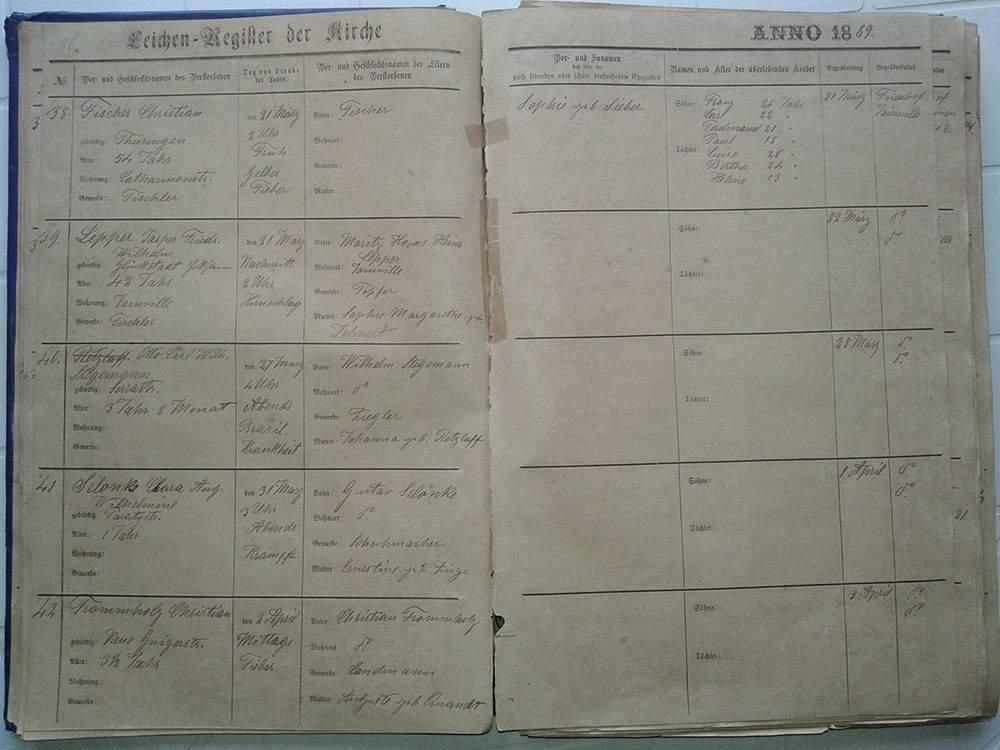 Leichen-Register der Kirche
ANNO 1869.
No.
Vor- und Geschlechtsnamen des Verstorbenen
Tag und Stunde
des Todes.
Vor- und Geschlechtsnamen der Eltern
des Verstorbenen
Vor- und Zunamen
des oder der
noch lebenden oder schon verstorbenen Ehegatten
Namen und Alter der überlebenden Kinder
Begräbnißtag
Begräbnißplatz
38. Fischer Christian
gebürtig: Thüringen
Alter: 54 Jahr
Wohnung: Catharinenstr.
Gewerbe: Tischler
den 21 März
2 Uhr
Früh
Gelber
Fieber
Vater: Fischer
Wohnort:
Gewerbe:
Mutter:
Sophie geb Sieber
Söhne: Franz 26 Jahr
Carl 22 "
Ferdinand 21 "
Paul 15 "
Töchter: Luise 28 "
Bertha 24 "
Helene 13 "
21 März
Friedhof
Joinville
39. Lepper Jasper Friedr.
Wilhelm
gebürtig: Glückstadt
Alter: 42 Jahr
Wohnung: Joinville
Gewerbe: Tischler
den 21 März
Nachmitt.
2 Uhr
Hirnschlag
Vater: Moritz Hans Heinr.
Lepper
Wohnort: Joinville
Gewerbe: Töpfer
Mutter: Sophie Margarethe geb.
Söhne:
Töchter:
22 März do
do
40. Retzlaff Otto Carl Wilh.
Stegemann
gebürtig: Serrastr.
Alter: 3 Jahr 8 Monat
Wohnung:
Gewerbe:
den 27 März
4 Uhr
Abends
Brasil.
Krankheit
Vater: Wilhelm Stegemann
Wohnort: do
Gewerbe: Ziegler
Mutter: Johanna geb. Retzlaff
Söhne:
Töchter:
28 März do
do
41 Selonke Clara Aug.
Wilhelmine
gebürtig:
Alter: 1 Jahr
Wohnung:
Gewerbe:
den 31 März
3 Uhr
Abends
Krämpfe
Vater: Gustav Selonke
Wohnort: do
Gewerbe: Schuhmacher
Mutter: Ernestine geb
Söhne:
Töchter:
1 April do
do
42 Trommholz Christian
gebürtig: Neue
Alter: 3½ Jahr
Wohnung:
Gewerbe:
den 2 April
Mittags
Fieber
Vater: Christian Trommholz
Wohnort do
Gewerbe: Landmann
Mutter: Auguste geb Brandt
Söhne:
Töchter:
3 April do
do
21.